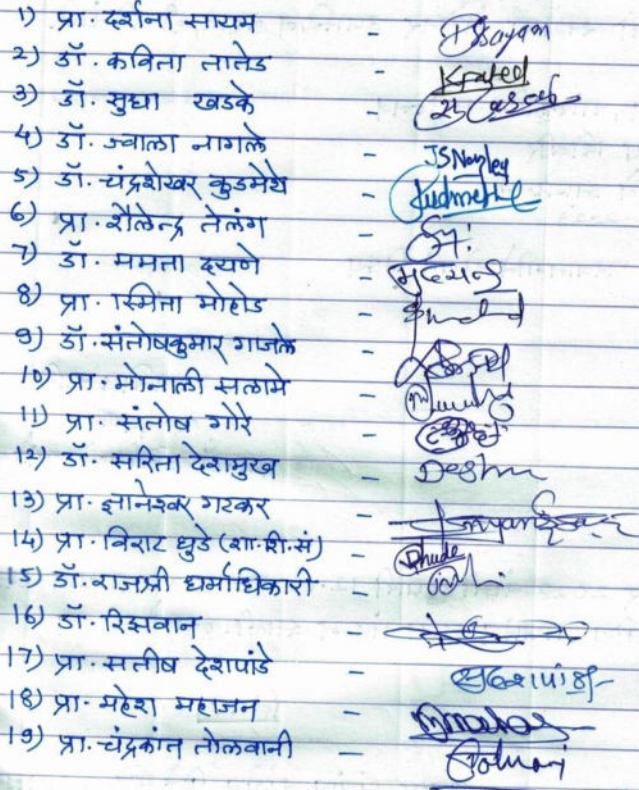 1) प्रा. दर्शना सायम - DSayam
2) डॉ. कविता तातेड - Krated
3) डॉ. सुधा खडके -
4) डॉ. ज्वाला नागले - JSNagley
5) डॉ. चंद्रशेखर कुडमेथे - Kudmethe
6) प्रा. शैलेन्द्र तेलंग -
7) डॉ. ममता दयणे -
8) प्रा. स्मिता मोहोड -
9) डॉ. संतोषकुमार गाजले -
10) प्रा. मोनाली सलामे -
11) प्रा. संतोष गोरे -
12) डॉ. सरिता देशमुख -
13) प्रा. ज्ञानेश्वर गटकर -
14) प्रा. विराट धुडे (शा.शि.सं) - Dhude
15) डॉ. राजश्री धर्माधिकारी -
16) डॉ. रिझवान -
17) प्रा. सतीष देशपांडे -
18) प्रा. महेश महाजन -
19) प्रा. चंद्रकांत तोलवानी -